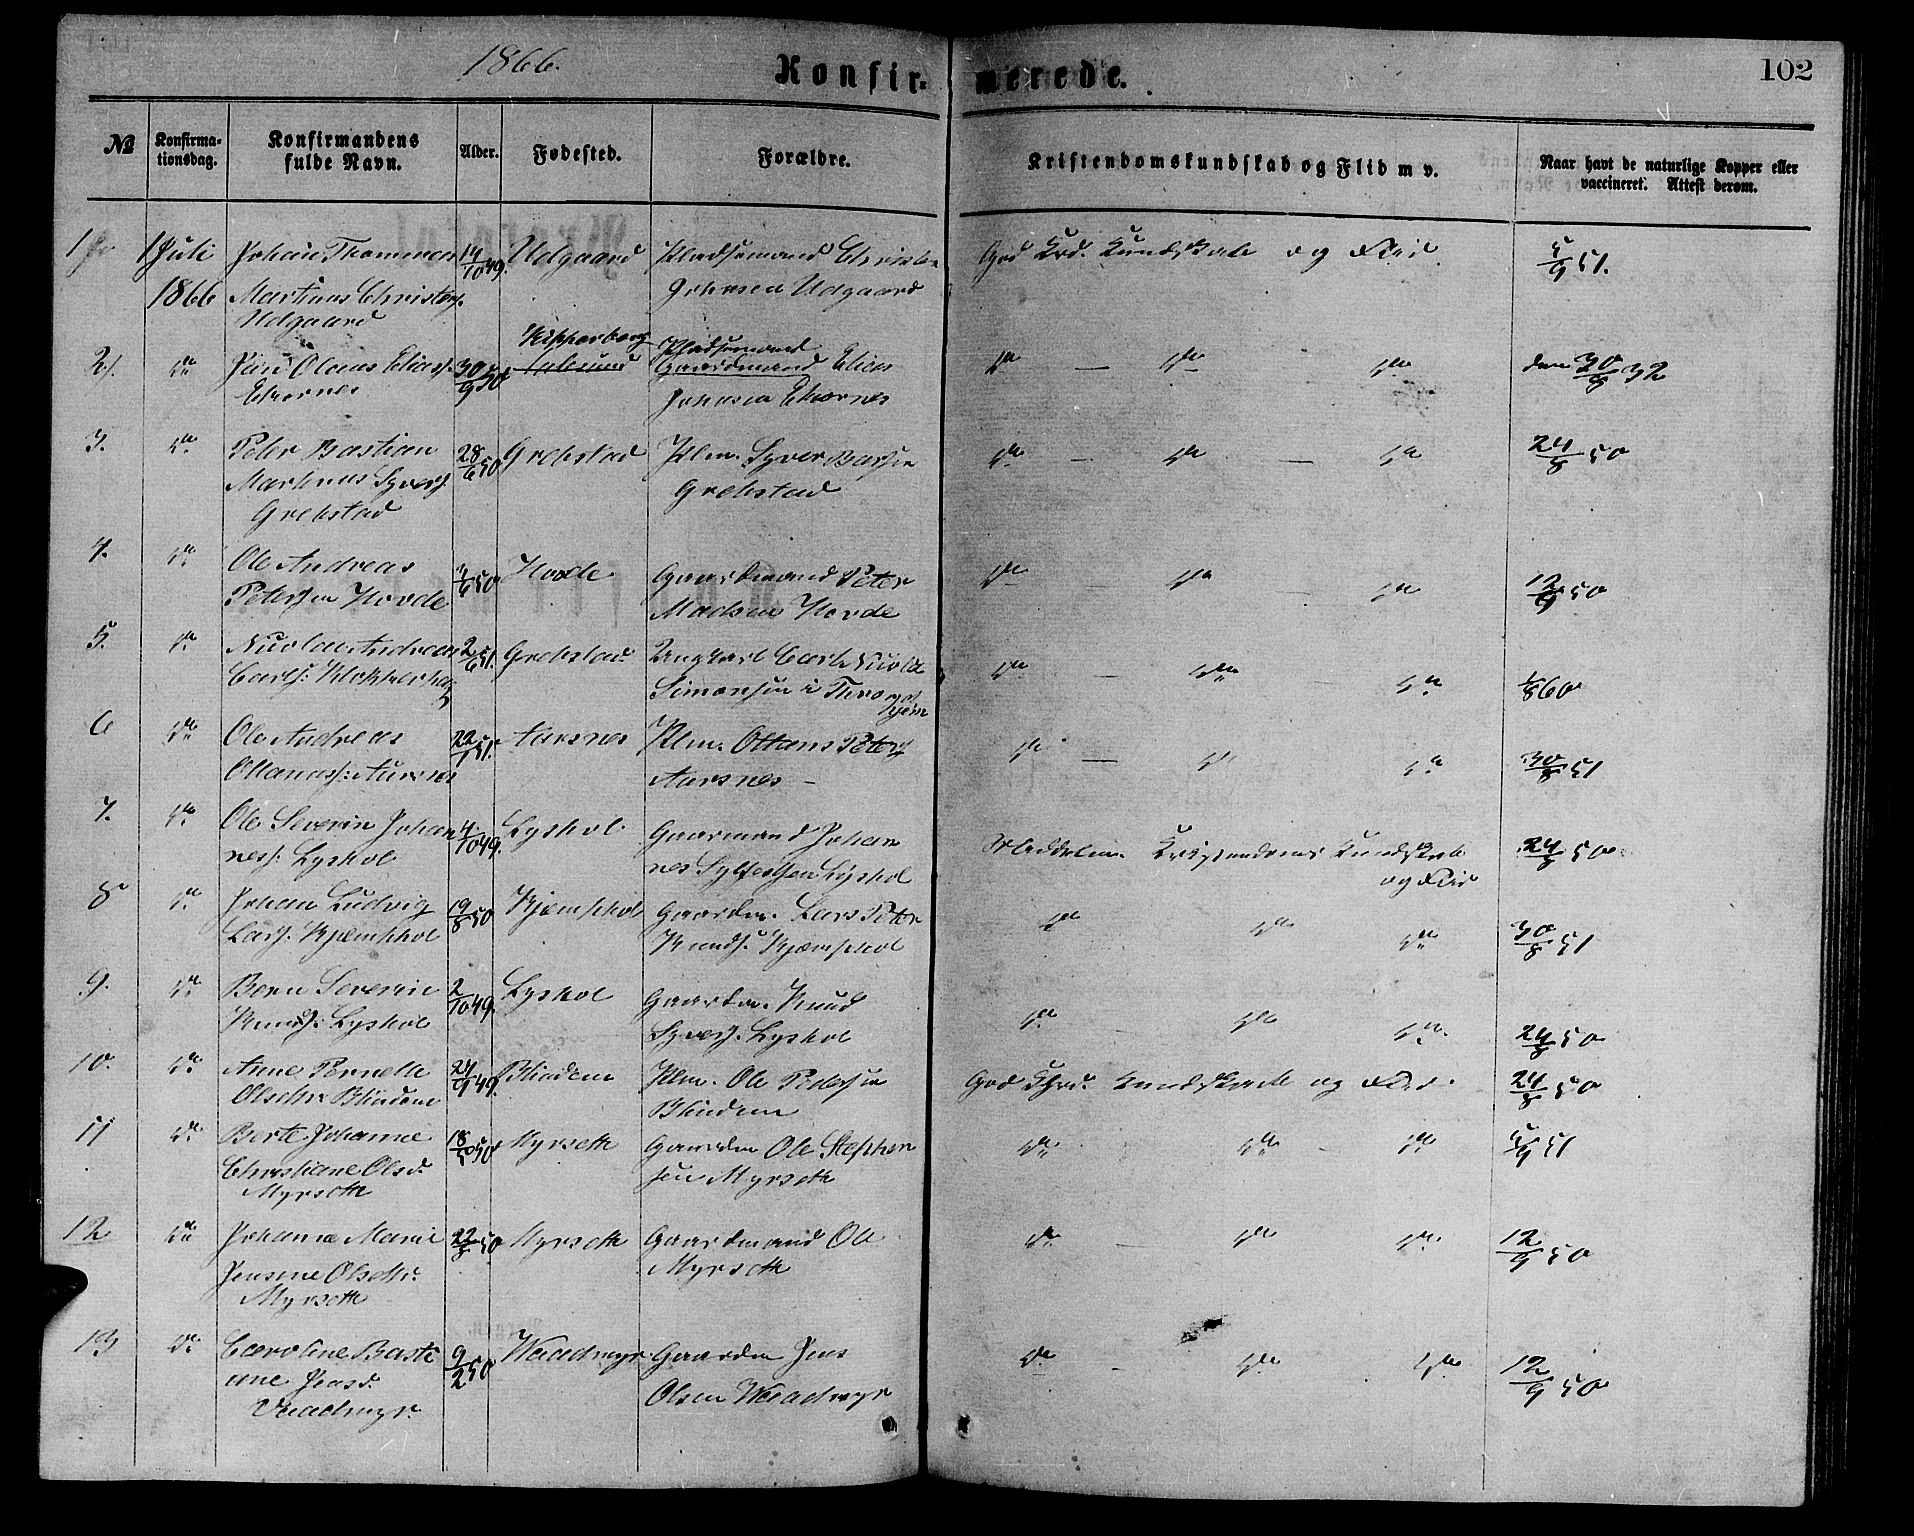 1866.
Konfir-
merede.
102
№
Konfirma-
tionsdag.
Konfirmandens
fulde Navn.
Alder.
Fødested.
Forældre.
Kristendomskundskab og Flid m v.
Naar havt de naturlige Kopper eller
vaccineret. Attest derom.
1
1 Juli
1866
Johan Thommas
Martinus Christens.
Udgaard
14/10 49.
Udgaard
Pladsemand Christen
Johnsen Udgaard
God Krd. Kundskab og Flid.
5/9 51.
2.
do
Olaus Elias.
Ekornes
30/9 50
Pladsemand
Gaardmand Elias
Johnsen Ekornes
do — do do
den 30/8 52
3.
do
Peter Bastian
Martinus Syvers.
Grebstad
28/6 50
Grebstad
Plm. Syver
Grebstad
do — do — do
24/8 50
4.
do
Ole Andreas
Petersen Hovde
50
Hovde
Gaardmand Peter
Madsen Hovde
do — do — do
12/9 50
5.
do
Nicolai Andreas
Carls.
2/6 51.
Grebstad
Ungkarl Carl Nicolai
Simonsen i
do do — do
1/8 60
6
do
Ole Andreas
Ottanass: Aursnes
22/1 51.
Aursnes
Plm. Ottanas Peters
Aursnes —
do — do do
30/8 51
7.
do
Ole Severin Johan
ness. Lyshol
4/10 49.
Lyshol.
Gaarmand Johan
nes Sylfestsen Lyshol
Maadelig Kristendoms Kundskab
og Flid
24/8 50
8
do
Johan Ludvig
Lars. Kjemphol
19/8 50
Kjemphol
Gaardm. Lars Peter
Knuds. Kjemphol
do do do
30/8 51
9.
do
Bern Severin
Knuds: Lyshol
2/10 49.
Lyshol
Gaardm. Knud
Syvers. Lyshol
do do do
24/8 50
10.
do
Anne Pernelle
Olsdtr: Blindem
24/9 49.
Blindem
Plm. Ole Pedersen
Blindem
God Chrd. Kundskab og Flid.
24/8 50
11
do
Berte Johanne
Christiane Olsd.
Myrseth
18/5 50
Myrseth
Gaardm Ole Stephen
sen Myrseth
do do - do
5/9 51
12
do
Johanne Marie
Jensine Olsdtr.
Myrseth
22/8 50
Myrseth
Gaardmand Ole
Myrseth
do — do do
12/9 50
13
do
Caroline Basti
ane Jensd.
Vaadmyr.
9/2 50
Waadmyr
Gaardm Jens
Olsen Waadmyr
do — do do
12/9 50